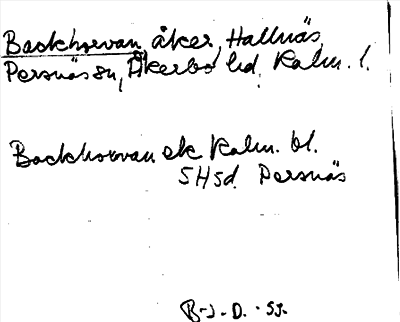 Backhorvan, åker, Hallnäs,
Persnäs sn, Åkerbo hd. Kalm. l.
Backhorvan ek Kalm. bl.
SHsd. Persnäs
B-J. D. -53.